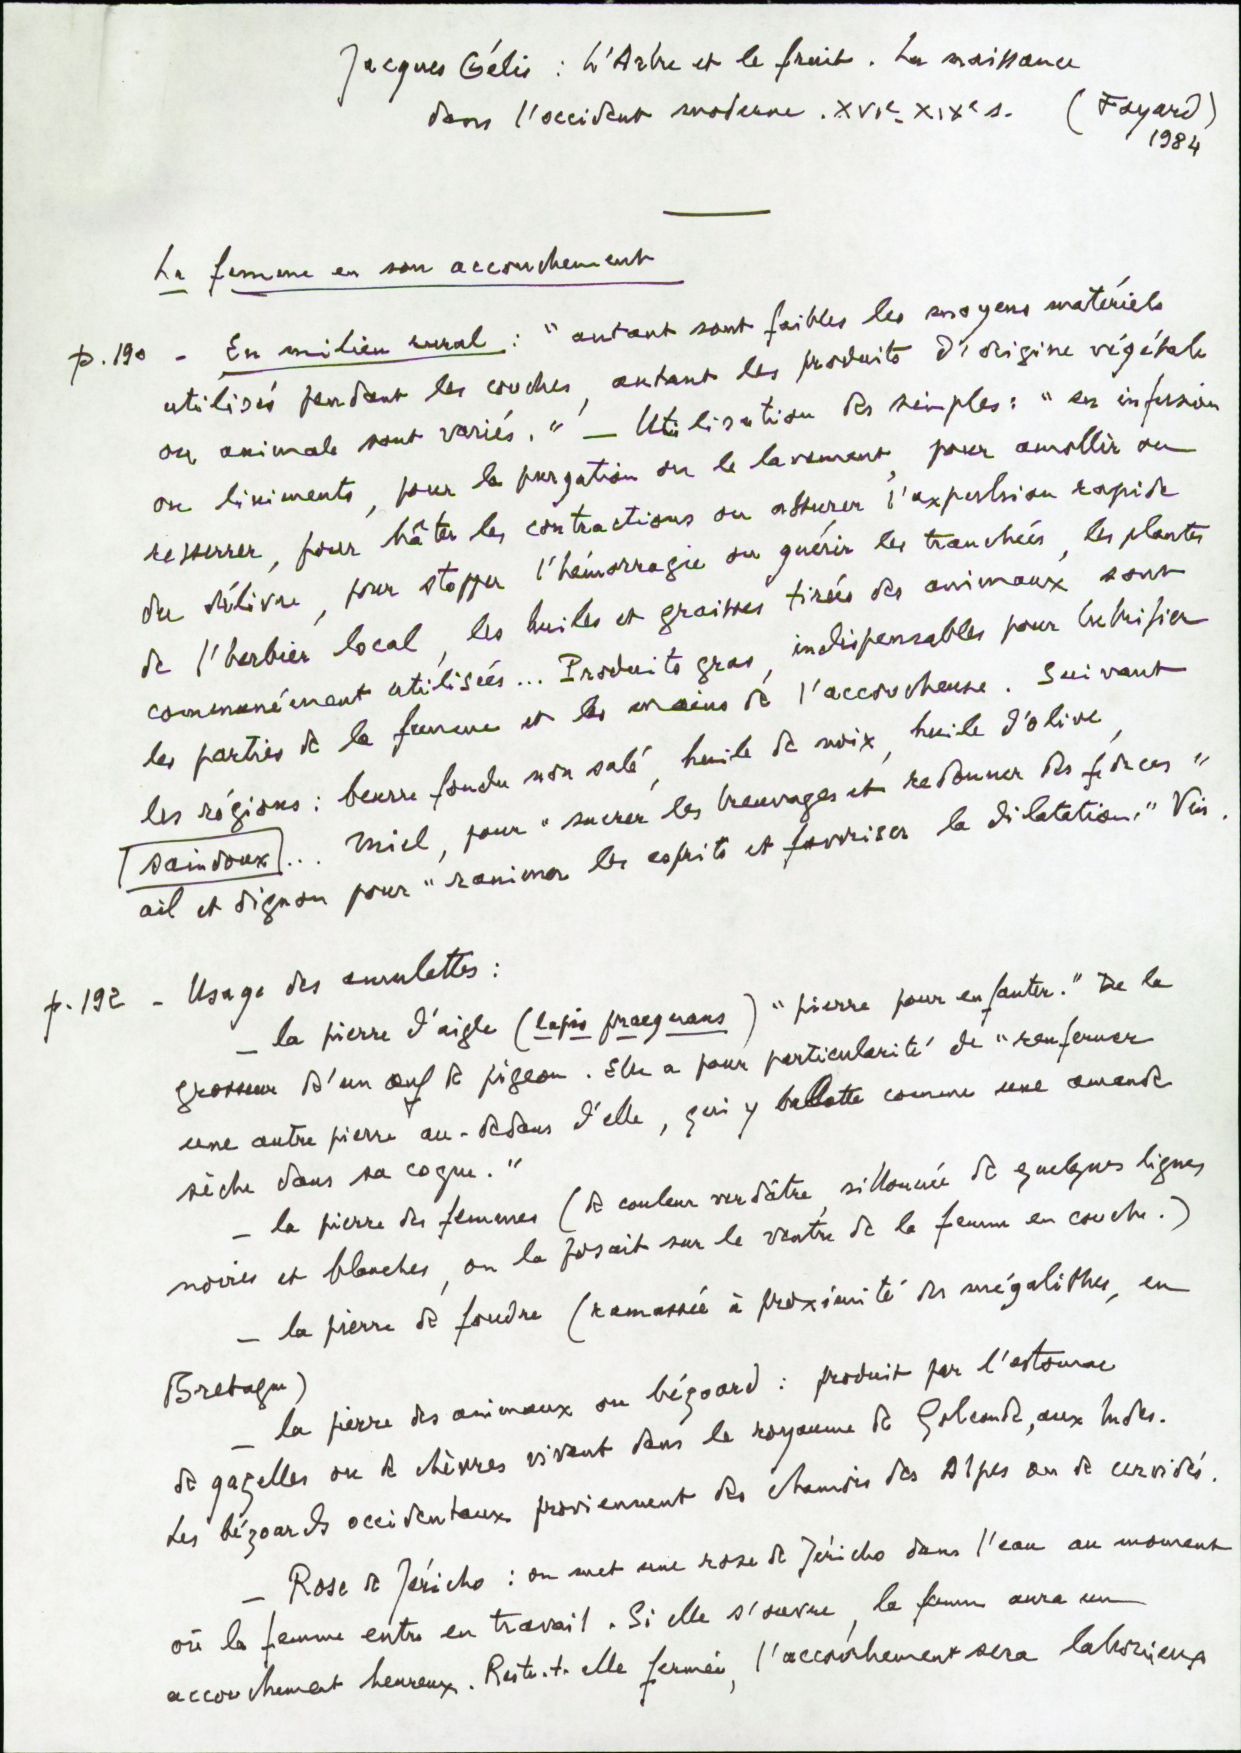 Jacques Gélis : L'Arbre et le fruit. La naissance
dans l'occident moderne. XVIe-XIXe s. (Fayard)
1984
La femme en son accouchement
p.190 - En milieu rural : "autant sont faibles les moyens matériels
utilisés pendant les couches, autant les produits d'origine végétale
ou animale sont variés." — Utilisation des simples : "en infusion
ou liniments, pour la purgation ou le lavement, pour amollir ou
resserrer, pour hâter les contractions ou assurer l'expulsion rapide
du délivre, pour stopper l'hémorragie ou guérir les tranchées, les plantes
de l'herbier local, les huiles et graisses tirées des animaux sont
communément utilisées... Produits gras, indispensables pour lubrifier
les parties de la femme et les mains de l'accoucheuse. Suivant
les régions : beurre fondu non salé, huile de noix, huile d'olive,
saindoux... Miel, pour "sucrer les breuvages et redonner des forces"
ail et oignon pour "ranimer les esprits et favoriser la dilatation." Vin.
p.192 - Usage des amulettes :
— la pierre d'aigle (lapis praegnans) "pierre pour enfanter." De la
grosseur d'un œuf de pigeon. Elle a pour particularité de "renfermer
une autre pierre au-dedans d'elle, qui y ballotte comme une amande
sèche dans sa coque."
— la pierre des femmes (de couleur verdâtre, sillonnée de quelques lignes
noires et blanches, on la posait sur le ventre de la femme en couche.)
— la pierre de foudre (ramassée à proximité des mégalithes, en
Bretagne)
— la pierre des animaux ou bézoard : produit par l'estomac
de gazelles ou de chèvres vivant dans le royaume de Golconde, aux Indes.
Les bézoards occidentaux proviennent des chamois des Alpes ou de cervidés.
— Rose de Jéricho : on met une rose de Jéricho dans l'eau au moment
où la femme entre en travail. Si elle s'ouvre, la femme aura un
accouchement heureux. Reste-t-elle fermée, l'accouchement sera laborieux